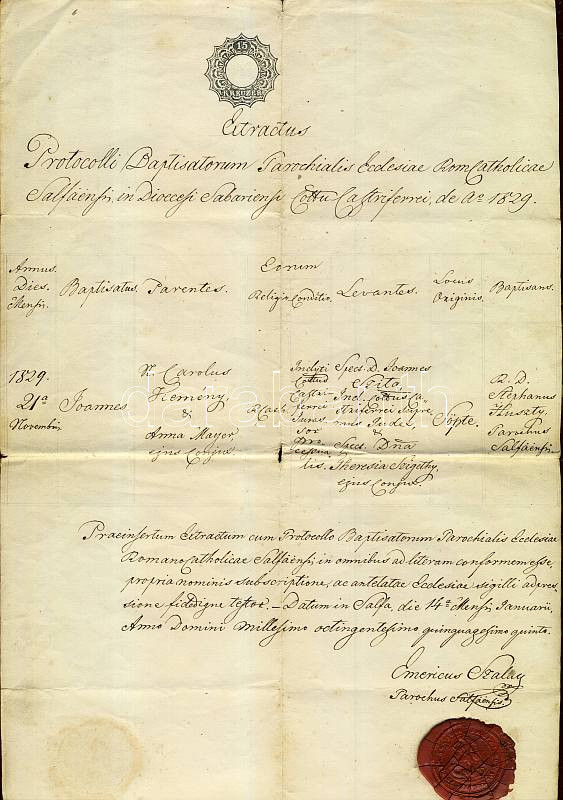 15
KREUZER
Extractus
Protocolli Baptisatorum Parochialis Ecclesiae Rom Catholicae
Salfaënsis, in Dioecesi Sabariensi Cottu Castriferrei, de Ao 1829.
Annus. Dies. Mensis.
Baptisatus.
Parentes.
Eorum
Religio
Conditio.
Levantes.
Locus Originis.
Baptisans.
1829.
21a
Novembris
Joannes
N. Carolus
Kemény,
&
Anna Mayer,
ejus Conjux.
R. Cath.
Inclyti
Cottus
Castri-
ferrei
Juras-
sor
Spec. D. Joannes
Szita,
Incl. Cottus Ca-
striferrei Supre-
mus Judex,
&
Spec. Dña
Theresia Szigethy
ejus Conjux.
Söpte.
R. D.
Stephanus
Huszty,
Parochus
Salfaënsis.
Praeinsertum Extractum cum Protocollo Baptisatorum Parochialis Ecclesiae
Romano Catholicae Salfaënsis, in omnibus ad literam conforme esse,
propria nominis subscriptione, ac antelatae Ecclesiae sigilli adpres-
sione fidedigne testor. – Datum in Salfa, die 14a Mensis Januarii,
Anno Domini Millesimo octingentesimo quinquagesimo quinto.
Emericus Szalay
Parochus Salfaënsis.
darabanth